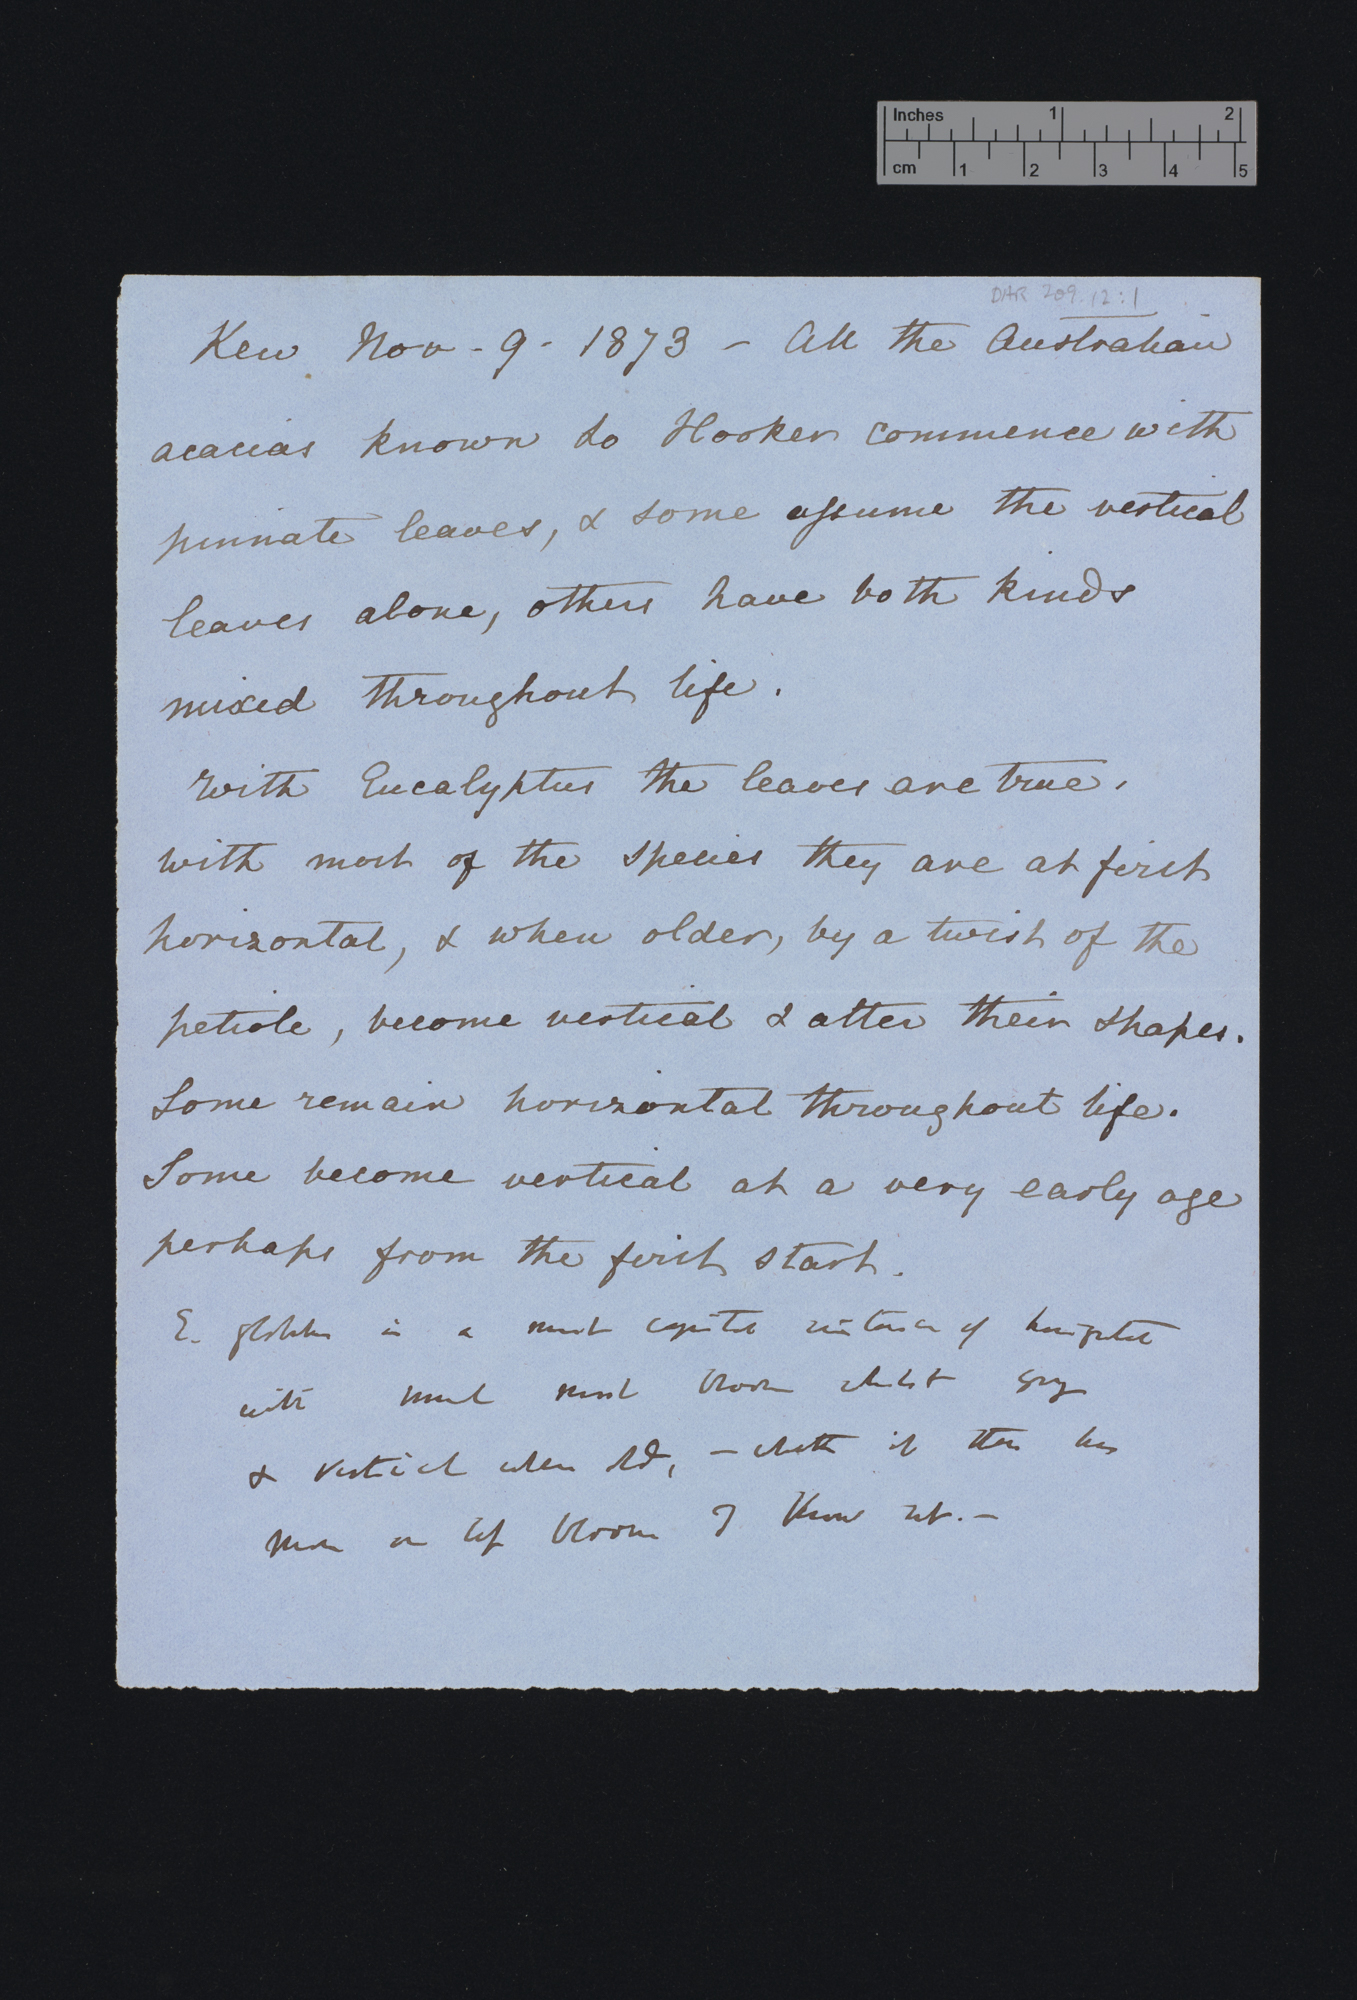 Inches 1 2
cm 1 2 3 4 5
DAR 209.12:1
Kew Nov - 9 - 1873 – All the Australian
acacias known to Hooker commence with
pinnate leaves, & some assume the vertical
leaves alone, others have both kinds
mixed throughout life.
With Eucalyptus the leaves are true.
with most of the species they are at first
horizontal, & when older, by a twist of the
petiole, become vertical & alter their shapes.
Some remain horizontal throughout life.
Some become vertical at a very early age
perhaps from the first start.
E. globulus is a most capital instance of horizontal
with most bloom whilst young
& vertical when old, – whether it then has
more or less bloom I know not. –